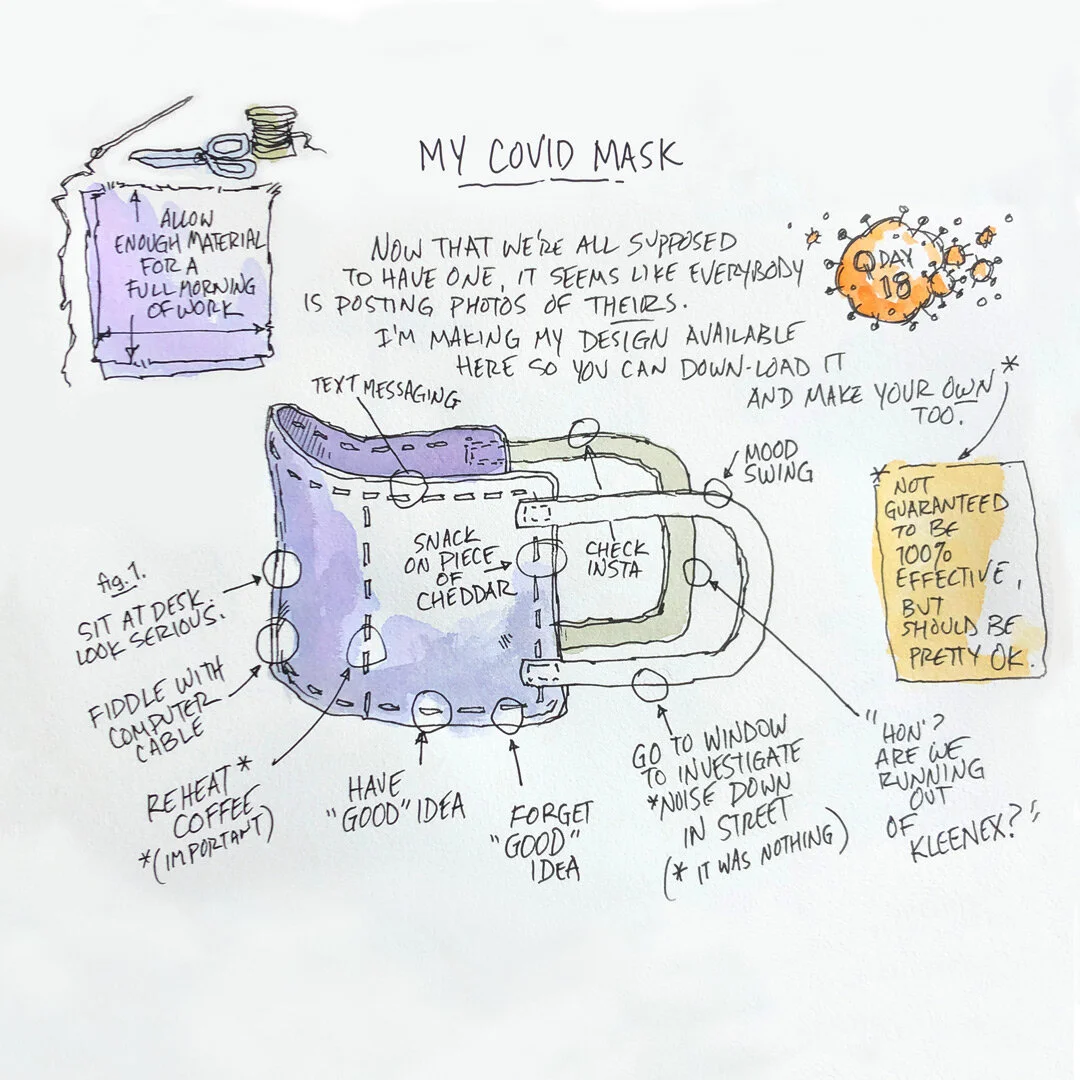 MY COVID MASK
ALLOW
ENOUGH MATERIAL
FOR A
FULL MORNING
OF WORK
NOW THAT WE'RE ALL SUPPOSED
TO HAVE ONE, IT SEEMS LIKE EVERYBODY
IS POSTING PHOTOS OF THEIRS.
I'M MAKING MY DESIGN AVAILABLE
HERE SO YOU CAN DOWN-LOAD IT
AND MAKE YOUR OWN *
TOO.
Q DAY
18
TEXT MESSAGING
MOOD
SWING
SNACK
ON PIECE
OF
CHEDDAR
CHECK
INSTA
* NOT
GUARANTEED
TO BE
100%
EFFECTIVE,
BUT
SHOULD BE
PRETTY OK.
fig. 1.
SIT AT DESK.
LOOK SERIOUS.
FIDDLE WITH
COMPUTER
CABLE
REHEAT *
COFFEE
*(IMPORTANT)
HAVE
"GOOD" IDEA
FORGET
"GOOD"
IDEA
GO TO WINDOW
TO INVESTIGATE
*NOISE DOWN
IN STREET
(* IT WAS NOTHING)
"HON'?
ARE WE
RUNNING
OUT
OF
KLEENEX?"